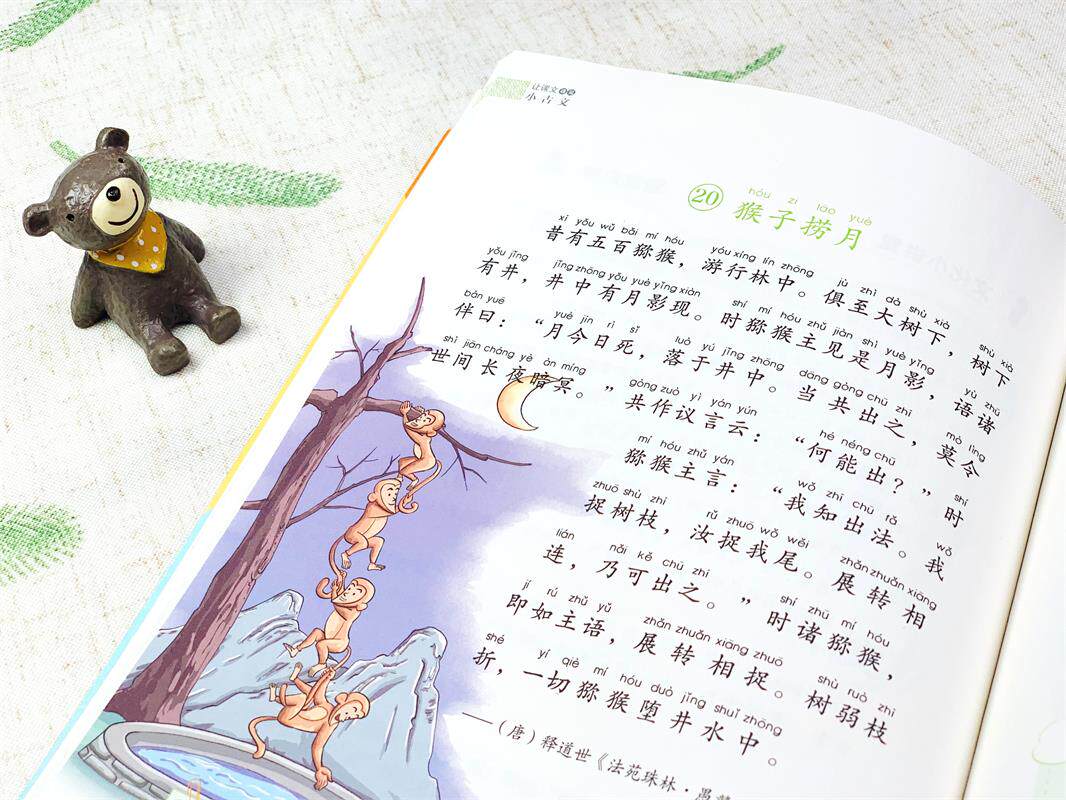 让课文
小古文
hóu zi lāo yuè
20 猴子捞月
xī yǒu wǔ bǎi mí hóu yóu xíng lín zhōng jù zhì dà shù xià shù xià
昔有五百猕猴，游行林中。俱至大树下，树下
yǒu jǐng jǐng zhōng yǒu yuè yǐng xiàn shí mí hóu zhǔ jiàn shì yuè yǐng yù zhū
有井，井中有月影现。时猕猴主见是月影，语诸
bàn yuē yuè jīn rì sǐ luò yú jǐng zhōng dāng gòng chū zhī mò lìng
伴曰：“月今日死，落于井中。当共出之，莫令
shì jiān cháng yè àn míng gòng zuò yì yán yún hé néng chū shí
世间长夜暗冥。”共作议言云：“何能出？”时
mí hóu zhǔ yán wǒ zhī chū fǎ wǒ
猕猴主言：“我知出法。我
zhuō shù zhī rǔ zhuō wǒ wěi zhǎn zhuǎn xiāng
捉树枝，汝捉我尾。展转相
lián nǎi kě chū zhī shí zhū mí hóu
连，乃可出之。”时诸猕猴，
jí rú zhǔ yǔ zhǎn zhuǎn xiāng zhuō shù ruò zhī
即如主语，展转相捉。树弱枝
shé yí qiè mí hóu duò jǐng shuǐ zhōng
折，一切猕猴堕井水中。
——（唐）释道世《法苑珠林·愚